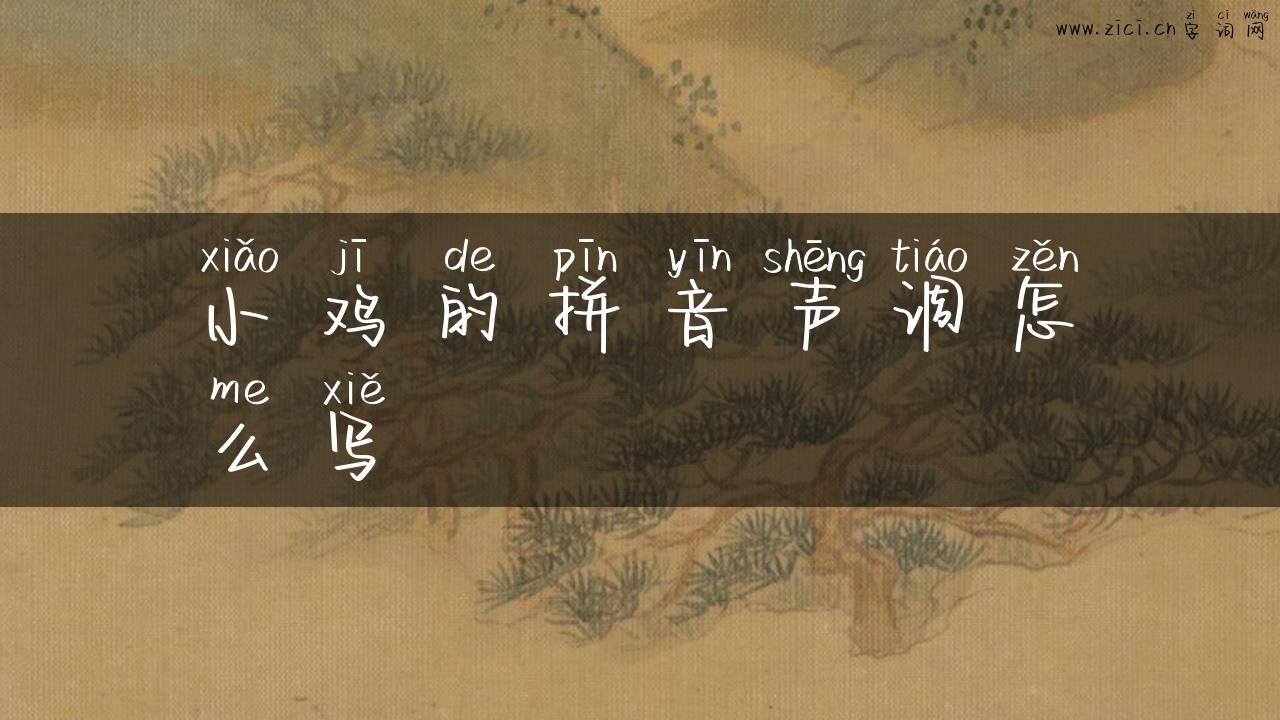 zì cí wǎng
www.zici.cn 字 词 网
xiǎo jī de pīn yīn shēng tiáo zěn
小 鸡 的 拼 音 声 调 怎
me xiě
么 写